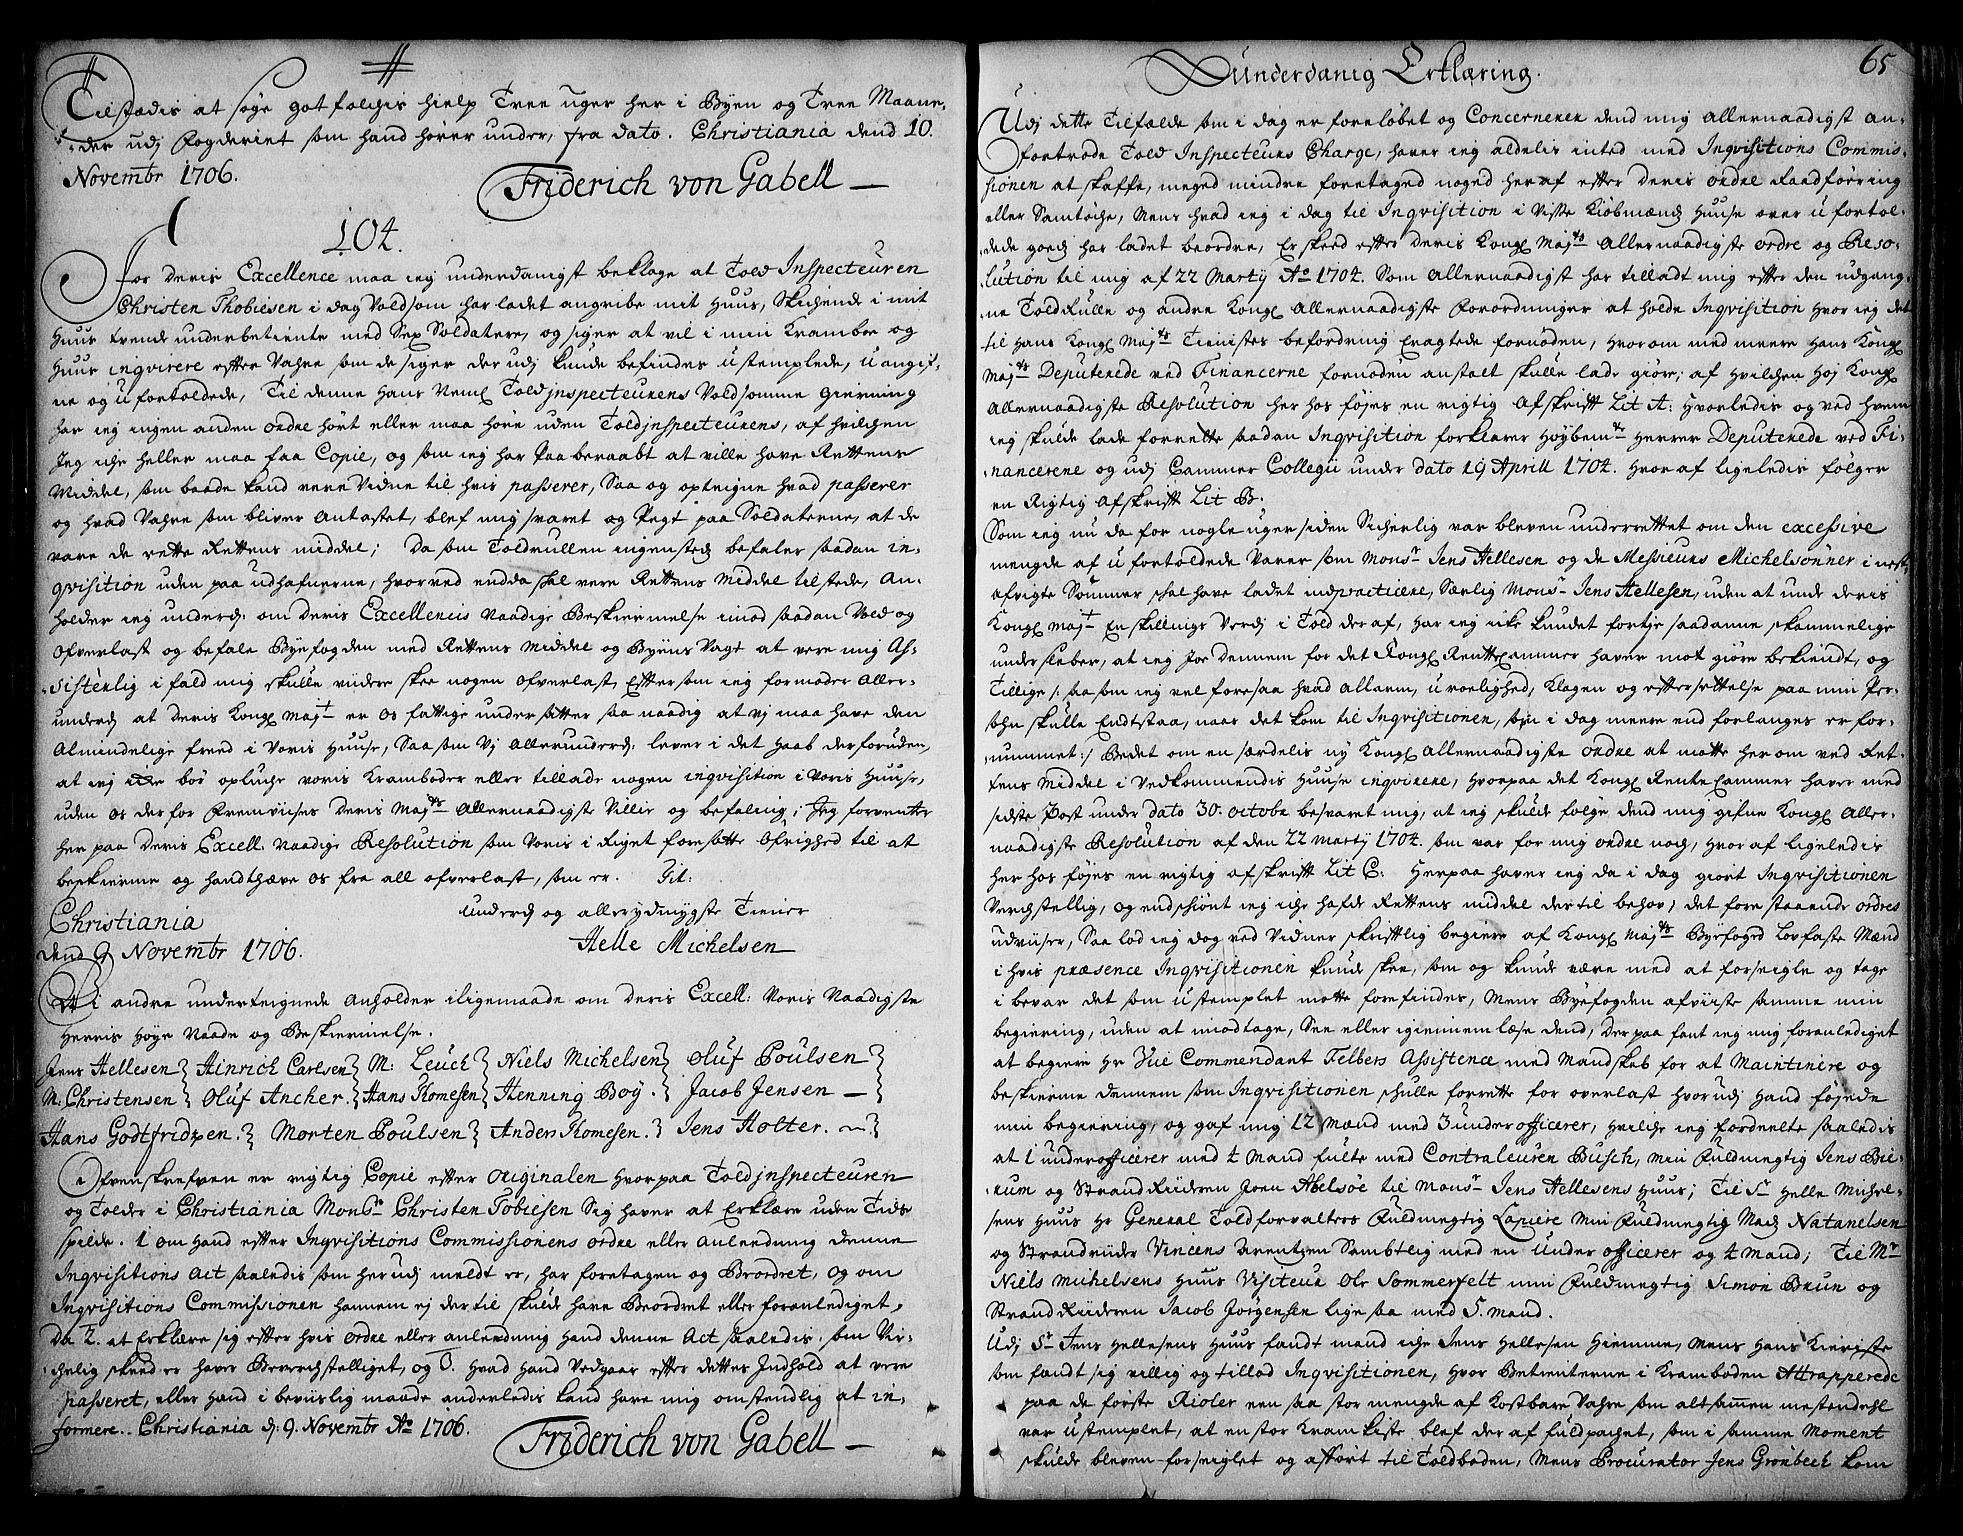 #
Tilstædis at søge got folchis hielp Tree uger her i Byen og Tree Maane-
der udj Fogderiet som hand hører under, fra dato. Christiania dend 10.
Novembr 1706.
Friderich von Gabell
104.
For Deris Excellence maa ieg underdanigst beklage at Told Inspecteuren
Christen Thobiesen i dag Voldsom har ladet angribe mit Huus, Skichende i mit
Huus trende underbetiente med Sex Soldatere, og siger at vil i min Kramboe og
Huus inqvirere efter Vahre som de siger der udj kunde befindes ustemplede, uangif-
ne og ufortoldede, Til denne Hans Veml Toldjnspecteurens Voldsomme Gierning
har ieg ingen anden ordre hørt eller maa høre uden Toldjnspecteurens, af hvilchen
Jeg iche heller maa faa Copie, og som ieg har Paaberaabt at ville have Rettens
Middel, som baade kand vere Vidne til hvis passerer, Saa og optegne hvad passerer
og hvad Vahre som bliver Antastet, blef mig svaret og Pegt paa Soldaterne, at de
vare de rette Rettens middel; Da som Toldrullen ingensteds befaler saadan in-
qvisition uden paa udhafnerne, hvorved endda skal vere Rettens Middel tilstede, An-
holder ieg underd: om Deris Excellencis Naadige Beskiermelse imod saadan Vold og
Ofverlast og befale Byefogden med Rettens Middel og Byens Vagt at vere mig As-
sistenlig i fald mig skulle viidere skee nogen Ofverlast, Eftersom ieg formoder Aller-
underd at Deris Kongl Majt er os fattige undersatter saa naadig at vj maa have den
Almindelige freed i Voris Huuse, Saa som Vj Allerunderd: lever i det Haab derforuden,
at vj iche bør opluche voris Kramboder eller tillade nogen inqvisition i Voris Huuse,
uden os derfor Fremviises Deris Majts Allernaadigste Villie og befaling; Jeg forventer
her paa Deris Excell: Naadige Resolution som Voris i Riget foresatte Øfrighed til at
beskierme og handthæve os fra all ofverlast, som er. Tit:
Christiania
underd og allerydmygste Tiener
dend 9 Novembr 1706.
Helle Michelsen
Vi andre underteignede Anholder iligemaade om Deris Excell: Voris Naadigste
Herris Høye Naade og Beskiermelse.
Jens Hellesen } Hinrich Carlsen } M: Leuch } Niels Michelsen } Oluf Poulsen }
M: Christensen } Oluf Ancher. } Hans Thomesen } Henning Boÿ. } Jacob Jensen }
Hans Godtfridzen. } Morten Poulsen } Anders Thomesen. } Jens Holter. }
Ofvenskrefven er rigtig Copie efter Originalen hvorpaa Toldjnspecteuren
og Tolder i Christiania Monsr Christen Tobiesen Sig haver at Erklære uden Tids
spilde. 1 om Hand efter Inqvisitions Commissionens ordre eller Anleedning denne
Inqvisitions Act saaledis som herudj meldt er, har foretagen og Beordret, og om
Inqvisitions Commissionen hannem ej der til skulde have Beordret eller foranlediget,
Da 2. at Erklære sig efter hvis ordre eller anleedning Hand denne Act saaledis som Vir-
chelig skeed er haver Beverchstelliget, og 3. hvad Hand Vedgaar efter dettes Indhold at vere
passeret, eller Hand i beviislig maade anderledis kand have mig omstendlig at in-
formere. Christiania d: 9. Novembr Ao 1706.
Friderich von Gabell
65
Underdanig Erklæring.
Udj dette Tilfælde som i dag er foreløbet og Concernerer dend mig Allernaadigst an-
fortrode Told Inspecteurs Charge, haver ieg aldelis inted med Inqvisitions Commis-
sionen at skaffe, meged mindre foretaged noged heraf efter Deris ordre Raadføring
eller Samtøche, Mens hvad ieg i dag til Inqvisition i Visse Kiøbmænds Huuse over ufortol-
dede goeds har ladet beordre, Er skeed efter Deris Kongl Majts Allernaadigste ordre og Reso-
lution til mig af 22 Martij Ao 1704. Som Allernaadigst har tilladt mig efter den udgang-
ne Told Rulle og andre Kongl Allernaadigste Forordninger at holde Inqvisition hvor ieg det
til Hans Kongl Majts Tienistes befordring Eragtede fornøden, hvorom med meere Hans Kongl
Majts Deputerede ved Financerne fornøden anstalt skulle lade giøre; af hvilchen høj Kongl
Allernaadigste Resolution her hos føjes en rigtig Afskrift Lit A: Hvorledis og ved hvem
ieg skulde lade forrette saadan Inqvisition forklarer Høybemte Herrer Deputerede ved Fi-
nancerne og udj Cammer Collegii under dato 19 Aprill 1704. hvor af ligeledis følger
en Rigtig Afskrift Lit B.
Som ieg nu da for nogle uger siden Sicherlig var bleven underrettet om den excessive
mengde af ufortoldede Varer som Monsr Jens Hellesen og de Messieurs Michelsønner i nest-
afvigte Sommer skal have ladet indpracticere, Særlig Monsr Jens Hellesen, uden at unde deris
Kongl Majt En skillings Verdj i Told deraf, har ieg icke kundet fortje saadanne skammelige
undersleber, at ieg Joe Dennem for det Kongl RentteCammer haver mot giøre bekiendt, og
Tillige /: saa som ieg vel foresaa hvad allarm, uroelighed, klagen og eftersettelse paa min Per-
sohn skulle Endtstaa, naar det kom til Inqvisitionen, som i dag meere end forlanges er for-
nummet :/ Bedet om en særdelis ny Kongl Allernaadigste ordre at motte herom ved Ret-
tens Middel i Vedkommendis Huuse inqvirere, hvorpaa det Kongl Rente Cammer haver med
sidste Post under dato 30. octobr besvaret mig, at ieg skulde følge dend mig gifne Kongl Aller-
naadigste Resolution af den 22 Martij 1704. som var for mig ordre noch, hvor af ligeledis
her hos føjes en rigtig afskrift Lit C: Herpaa haver ieg da i dag giort Inqvisitionen
Verchstellig, og endschiønt ieg iche hafde Rettens middel der til behov, det forestaaende ordres
udviiser, Saa lod ieg dog ved Vidner skriftlig begiere af Kongl Majts Byefoged Lovfaste Mænd
i hvis præsence Inqvisitionen kunde skee, som og kunde være med at forseigle og tage
i bevar det som ustemplet motte forefindes, Mens Byefogden afviiste samme min
begiering, uden at imodtage, See eller igiennemlæse dend, Derpaa fant ieg mig foranlediget
at begiere Hr Vice Commendant Felbers Assistence med Mandskab for at Maintinere og
beskierme dennem som Inqvisitionen schulle forrette for overlast hvorudj Hand føjede
min begiering, og gaf mig 12 Mænd med 3 underofficerer, hvilche ieg fordeelte saaledis
at 1 underofficerer med 4 Mand fulte med Contraleuren Busch, min Fuldmegtig Jens Bie-
rum og StrandRiideren Joen Abelsøe til Monsr Jens Hellesens Huus; Til Sr Helle Michel-
sens Huus Hr General Toldforvalters Fuldmegtig Lapiere Min Fuldmegtig Mads Natanelsen
og Strandriider Vincens Arentzen Sambtlig med en Under officerer og 4 Mand; Til Mr
Niels Michelsens Huus Visiteur Ole Sommerfelt min Fuldmegtig Simon Brun og
StrandRiideren Jacob Jørgensen ligesaa med 5. Mand.
Udj Sr Jens Hellesens Huus fandt mand iche Jens Hellesen hiemme, Mens Hans Kieriste
som fandt sig villig og tillod Inqvisitionen, hvor Betienterne i Kramboden Attrapperede
paa de første Rioler een saa stor mengde af kostbare Vahre som altsammen mestendehl
var ustemplet, at en stor Kramkiste blef der af fuldpachet, som i samme Moment
skulde bleven forseiglet og afført til Toldboden, Mens Procurator Jens Grønbech kom